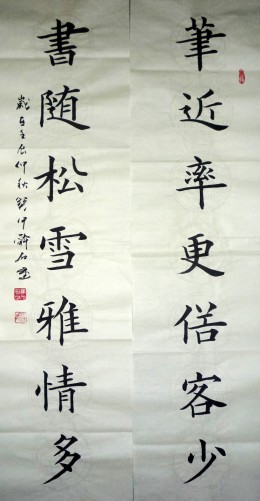 筆近率更俗客少
書随松雪雅情多
歲在壬辰仲秋